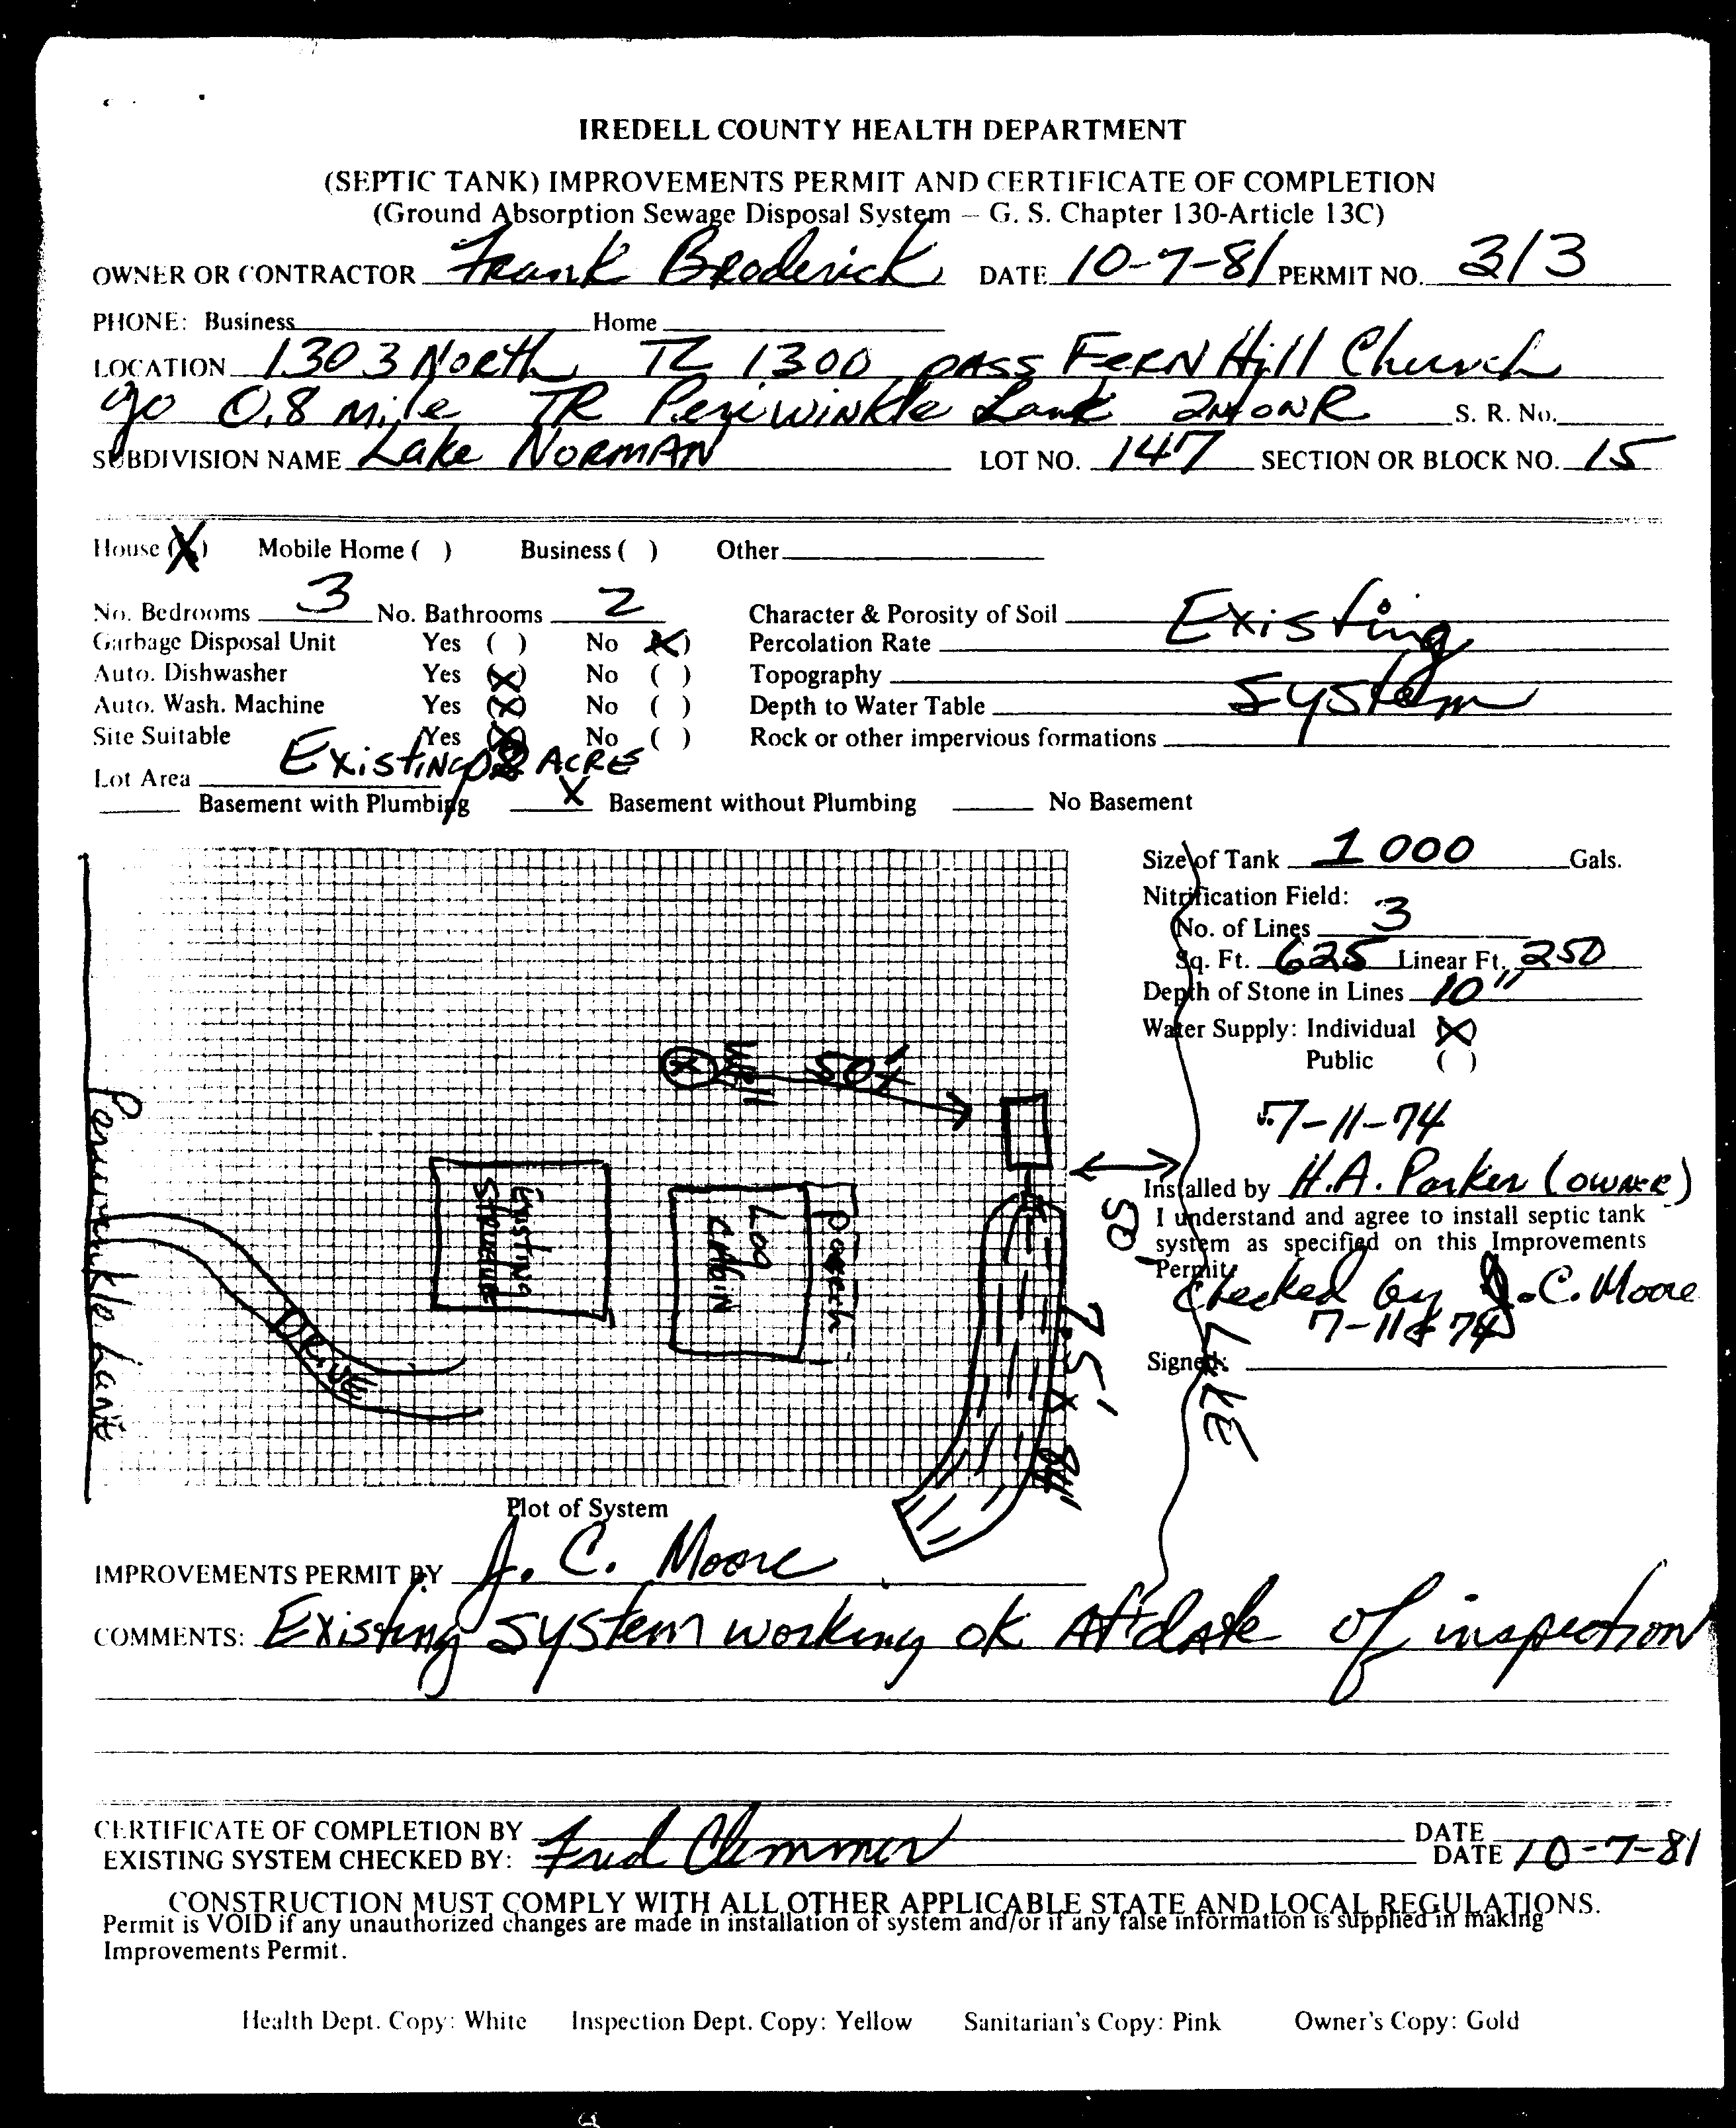 IREDELL COUNTY HEALTH DEPARTMENT
(SEPTIC TANK) IMPROVEMENTS PERMIT AND CERTIFICATE OF COMPLETION
(Ground Absorption Sewage Disposal System – G. S. Chapter 130-Article 13C)
OWNER OR CONTRACTOR Frank Broderick DATE 10-7-81 PERMIT NO. 313
PHONE: Business Home
LOCATION 1303 North TL 1300 pass Fern Hill Church
go 0.8 mile TR Periwinkle Lane 2nd on R S. R. No.
SUBDIVISION NAME Lake NORMAN LOT NO. 147 SECTION OR BLOCK NO. 15
House (X) Mobile Home ( ) Business ( ) Other
No. Bedrooms 3 No. Bathrooms 2 Character & Porosity of Soil Existing
Garbage Disposal Unit Yes ( ) No (X) Percolation Rate
Auto. Dishwasher Yes (X) No ( ) Topography System
Auto. Wash. Machine Yes (X) No ( ) Depth to Water Table
Site Suitable Yes (X) No ( ) Rock or other impervious formations
Lot Area Existing ACRE
Basement with Plumbing X Basement without Plumbing No Basement
Size of Tank 1000 Gals.
Nitrification Field:
No. of Lines 3
Sq. Ft. 625 Linear Ft. 250
Depth of Stone in Lines 10"
Water Supply: Individual (X)
Public ( )
Well 50'±
7-11-74
Installed by H.A. Parker (owner)
I understand and agree to install septic tank
system as specified on this Improvements
Permit.
Checked by J. C. Moore
7-11-74
Signed:
Periwinkle Lane
DRIVE
Existing
Structure
Log
CABIN
porch
50'
2.5' X 84'
LAKE
Plot of System
IMPROVEMENTS PERMIT BY J. C. Moore
COMMENTS: Existing system working ok At date of inspection
CERTIFICATE OF COMPLETION BY DATE
EXISTING SYSTEM CHECKED BY: Fred Clemmer DATE 10-7-81
CONSTRUCTION MUST COMPLY WITH ALL OTHER APPLICABLE STATE AND LOCAL REGULATIONS.
Permit is VOID if any unauthorized changes are made in installation of system and/or if any false information is supplied in making
Improvements Permit.
Health Dept. Copy: White Inspection Dept. Copy: Yellow Sanitarian's Copy: Pink Owner's Copy: Gold